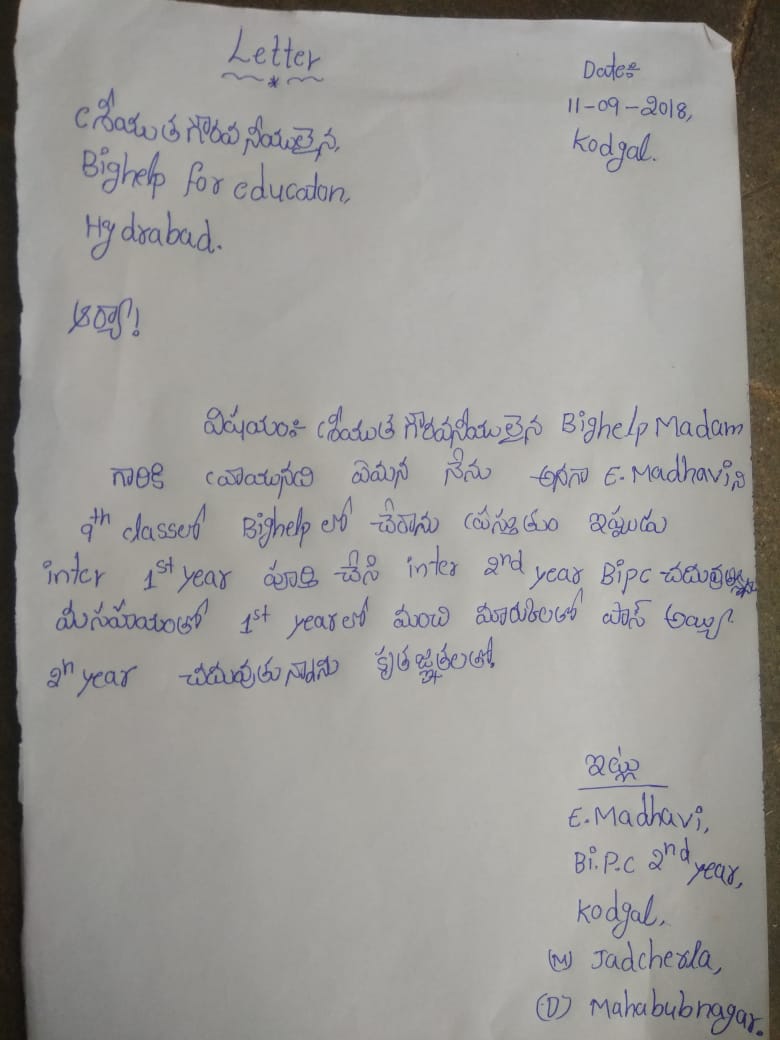 Letter
Date:
11-09-2018,
Kodgal.
శ్రీయుత గౌరవనీయులైన,
Bighelp for educaton,
Hydrabad.
ఆర్యా!
విషయం:- శ్రీయుత గౌరవనీయులైన Bighelp Madam
గారికి వ్రాయునది ఏమన నేను అనగా E. Madhavi ని
9th classలో Bighelp లో చేరాను ప్రస్తుతం ఇప్పుడు
inter 1st year పూర్తి చేసి inter 2nd year Bipc
మీ సహాయంతో 1st year లో మంచి మారుకులతో పాస్ అయ్యి
2n year చదువుతున్నాను కృతజ్ఞతలతో
ఇట్లు
E. Madhavi,
Bi.P.C 2nd year,
Kodgal,
(M) Jadcherla,
(D) Mahabubnagar.